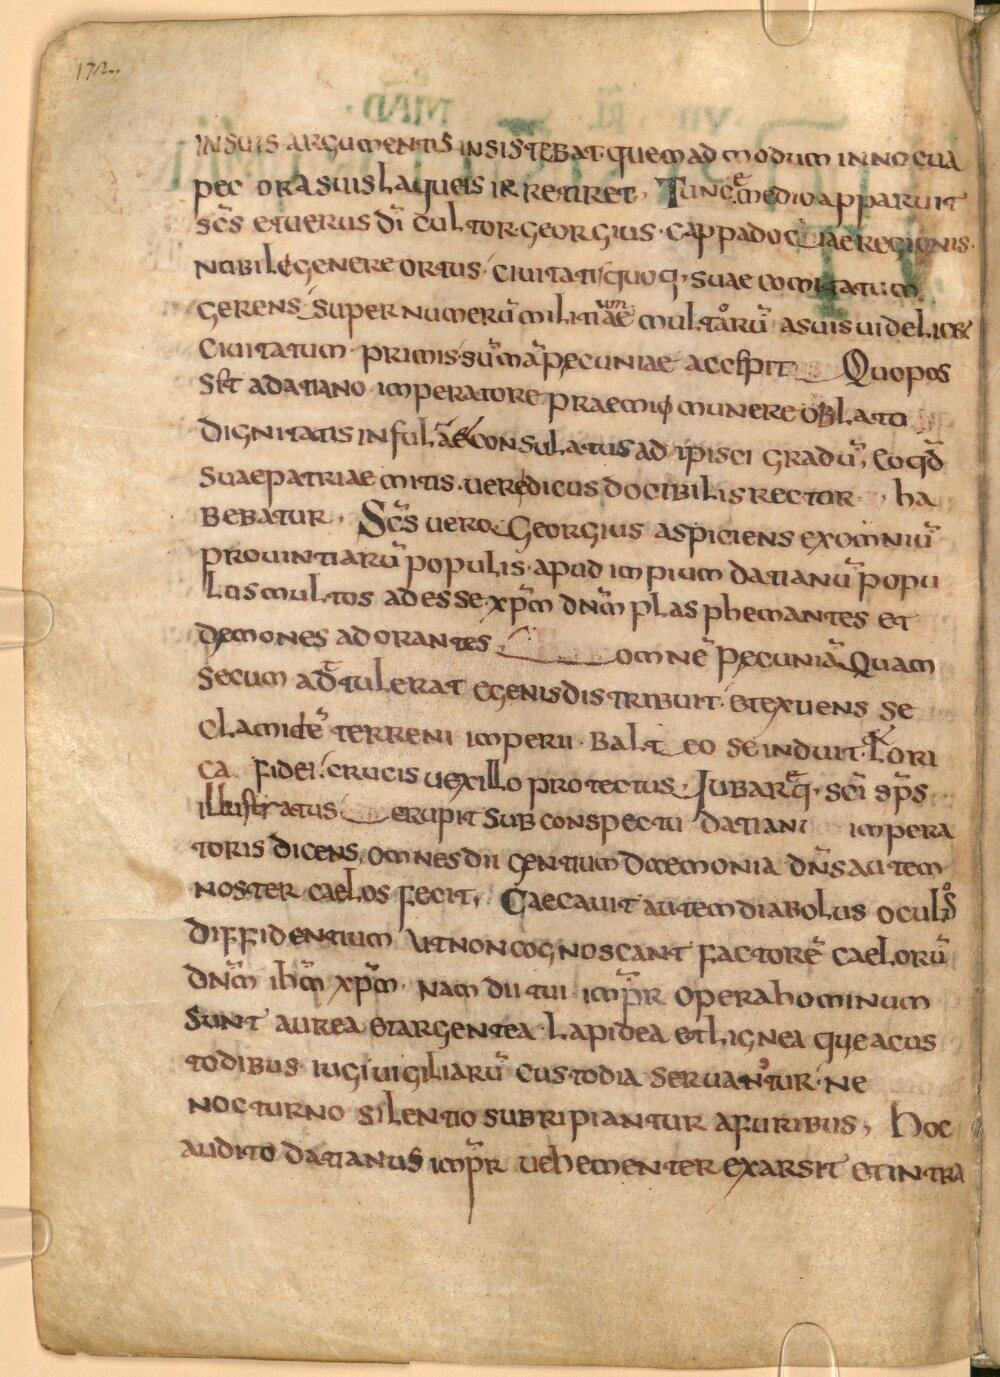 172.
in suis argumentis insistebat· quem ad modum innocua
pec ora suis laqueis irretiret, Tunc e medio apparuit
sc̄s et uerus dī cultor· georgius· cappadociae regionis·
nobile genere ortus· ciuitatis quoq· suae comitatum
gerens· super numerū militiae multorū a suis uidelicet
ciuitatum primis· sūmā pecuniae accepit Quo pos
sit a datiano imperatore praemio munere oblato
dignitatis infulae consulatus adipisci gradū, Eo qđ
suae patriae mitis· ueredicus docibilis rector ha
bebatur, Sc̄s uero Georgius aspiciens ex omniū
prouintiarū populis· apud impium datianū popu
los multos adesse· xp̄m dn̄m plasphemantes et
demones adorantes omnē pecuniā Quam
secum adtulerat egenis distribuit· et exuens se
clamidē terreni imperii· balteo se induit· lori
ca fidei· crucis uexillo protectus· Jubareq· sc̄i sp̄s
illustratus erupit sub conspectu datiani impera
toris dicens, omnes dii gentium daemonia dn̄s autem
noster caelos fecit, Caecauit autem diabolus oculos
diffidentium ut non cognoscant factorē caelorū
dn̄m ih̄m xp̄m· nam dii tui imp̄r opera hominum
sunt aurea et argentea· lapidea et lignea que a cus
todibus iugi uigiliarū custodia seruantur· ne
nocturno silentio subripiantur a furibus, Hoc
audito datianus imp̄r uehementer exarsit et in tra